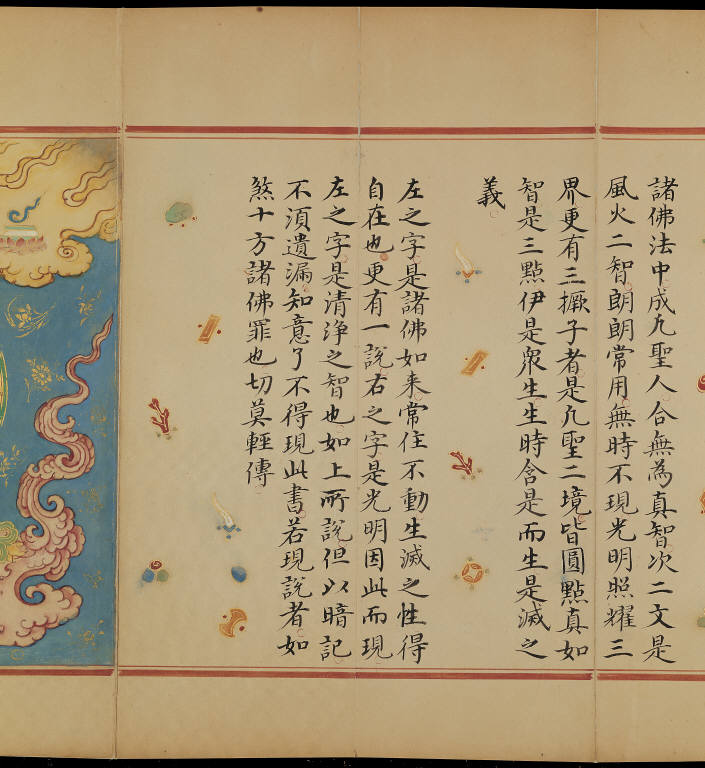 諸佛法中成凢聖人合無為真智次二文是
風火二智朗朗常用無時不現光明照耀三
界更有三撅子者是凢聖二境皆圓點真如
智是三點伊是衆生生時含是而生是滅之
義
左之字是諸佛如来常住不動生滅之性得
自在也更有一說右之字是光明因此而現
左之字是清淨之智也如上所說但以暗記
不須遺漏知意了不得現此書若現說者如
煞十方諸佛罪也切莫輕傳